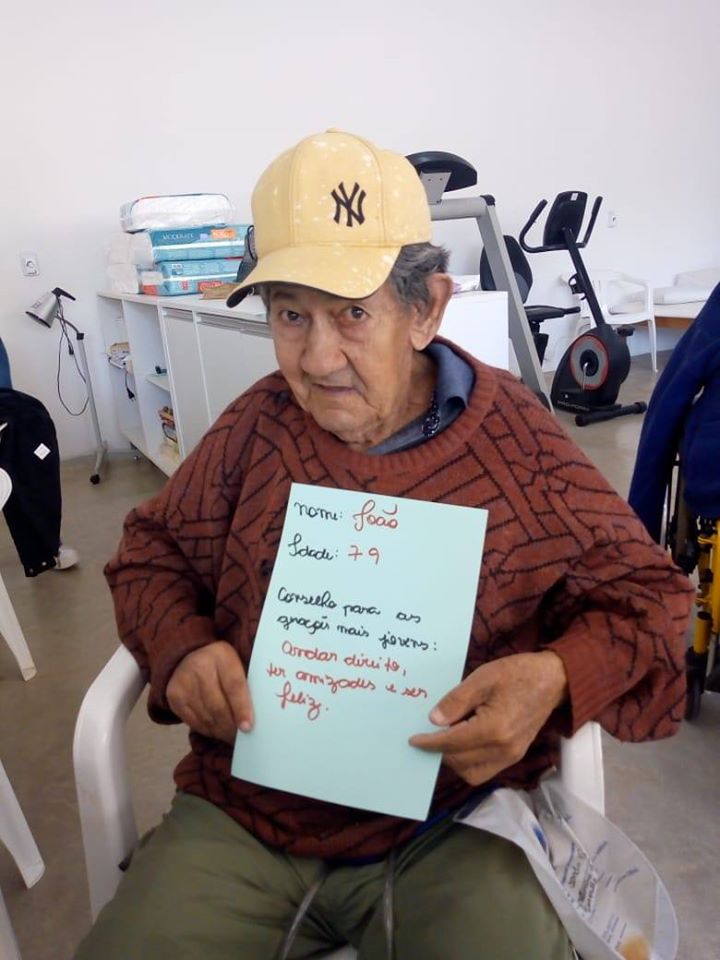 NY
MODERATE
PRO-FORM
nome: João
Idade: 79
Conselho para as
geração mais jovens:
Andar direito,
ter amizades e ser
feliz.